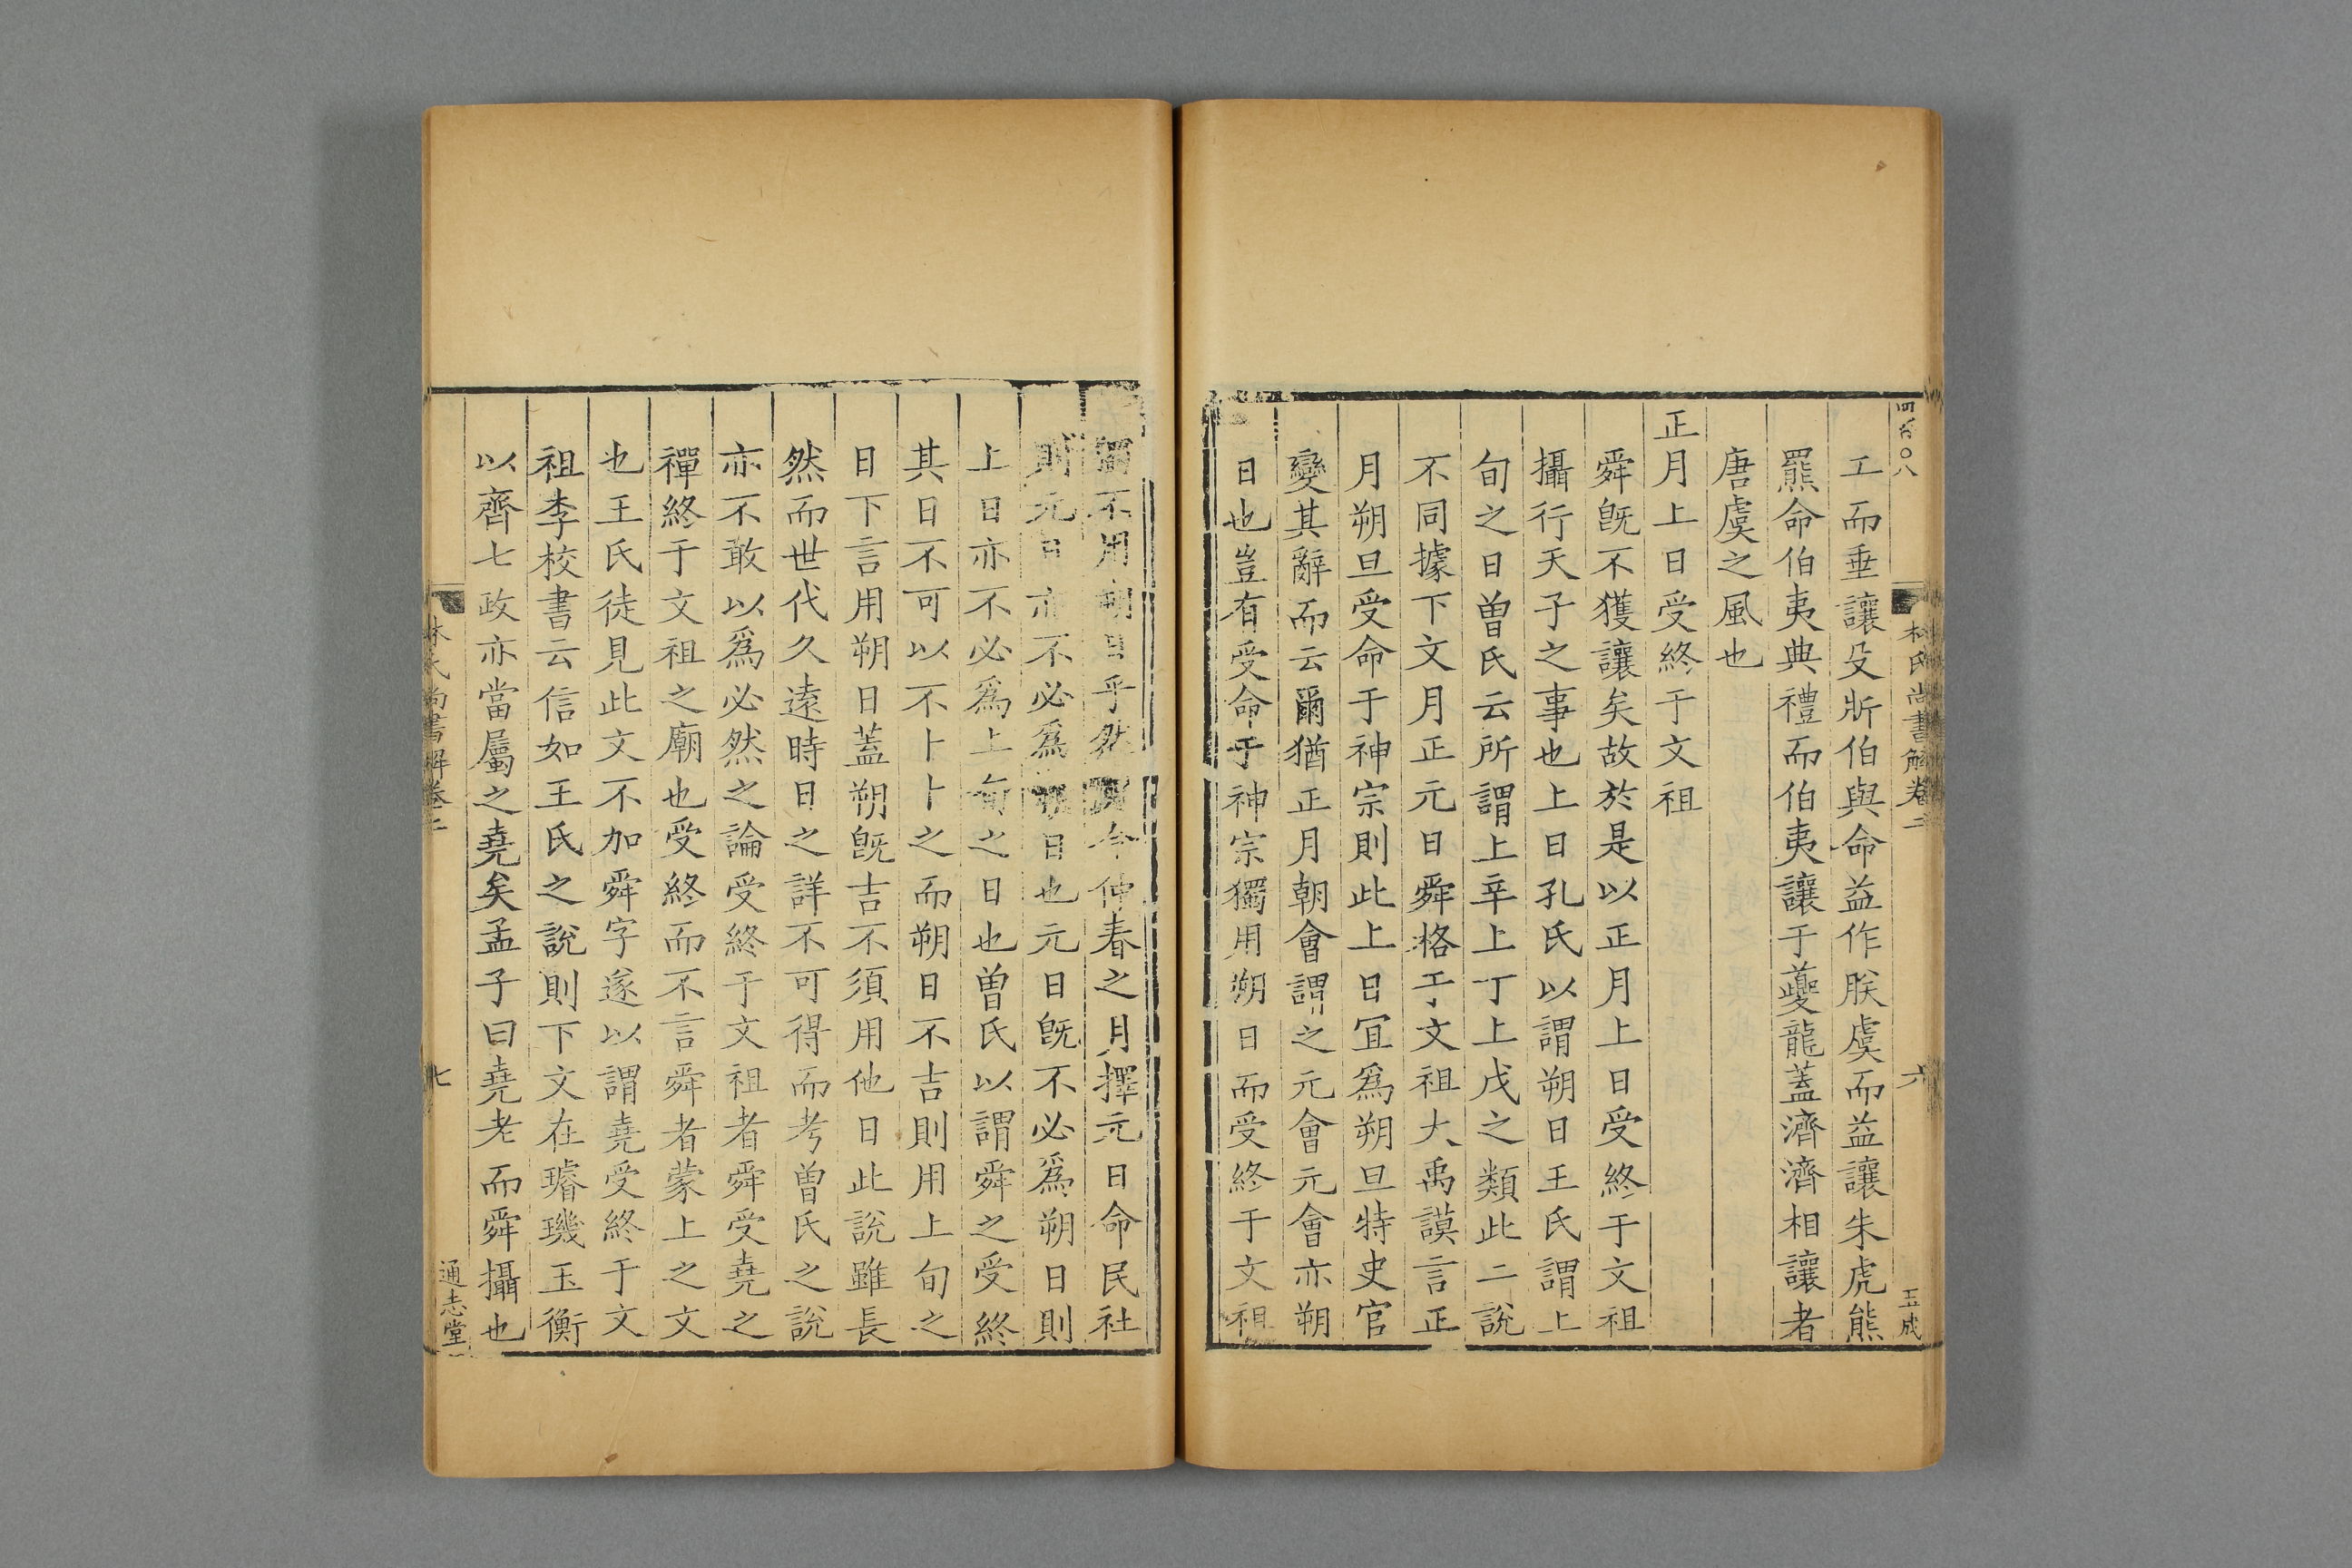 四百〇八
林氏尚書解卷二
六
玉成
工而垂讓殳斨伯與命益作朕虞而益讓朱虎熊
羆命伯夷典禮而伯夷讓于夔龍蓋濟濟相讓者
唐虞之風也
正月上日受終于文祖
舜既不獲讓矣故於是以正月上日受終于文祖
攝行天子之事也上日孔氏以謂朔日王氏謂上
旬之日曾氏云所謂上辛上丁上戊之類此二說
不同據下文月正元日舜格于文祖大禹謨言正
月朔旦受命于神宗則此上日宜爲朔旦特史官
變其辭而云爾猶正月朝會謂之元會元會亦朔
日也豈有受命于神宗獨用朔日而受終于文祖
獨不用朔日乎然月令仲春之月擇元日命民社
則元日亦不必爲朔日也元日既不必爲朔日則
上日亦不必爲上旬之日也曾氏以謂舜之受終
其日不可以不卜卜之而朔日不吉則用上旬之
日下言用朔日蓋朔既吉不須用他日此說雖長
然而世代久遠時日之詳不可得而考曾氏之說
亦不敢以爲必然之論受終于文祖者舜受堯之
禪終于文祖之廟也受終而不言舜者蒙上之文
也王氏徒見此文不加舜字遂以謂堯受終于文
祖李校書云信如王氏之說則下文在璿璣玉衡
以齊七政亦當屬之堯矣孟子曰堯老而舜攝也
林氏尚書解卷二
七
通志堂